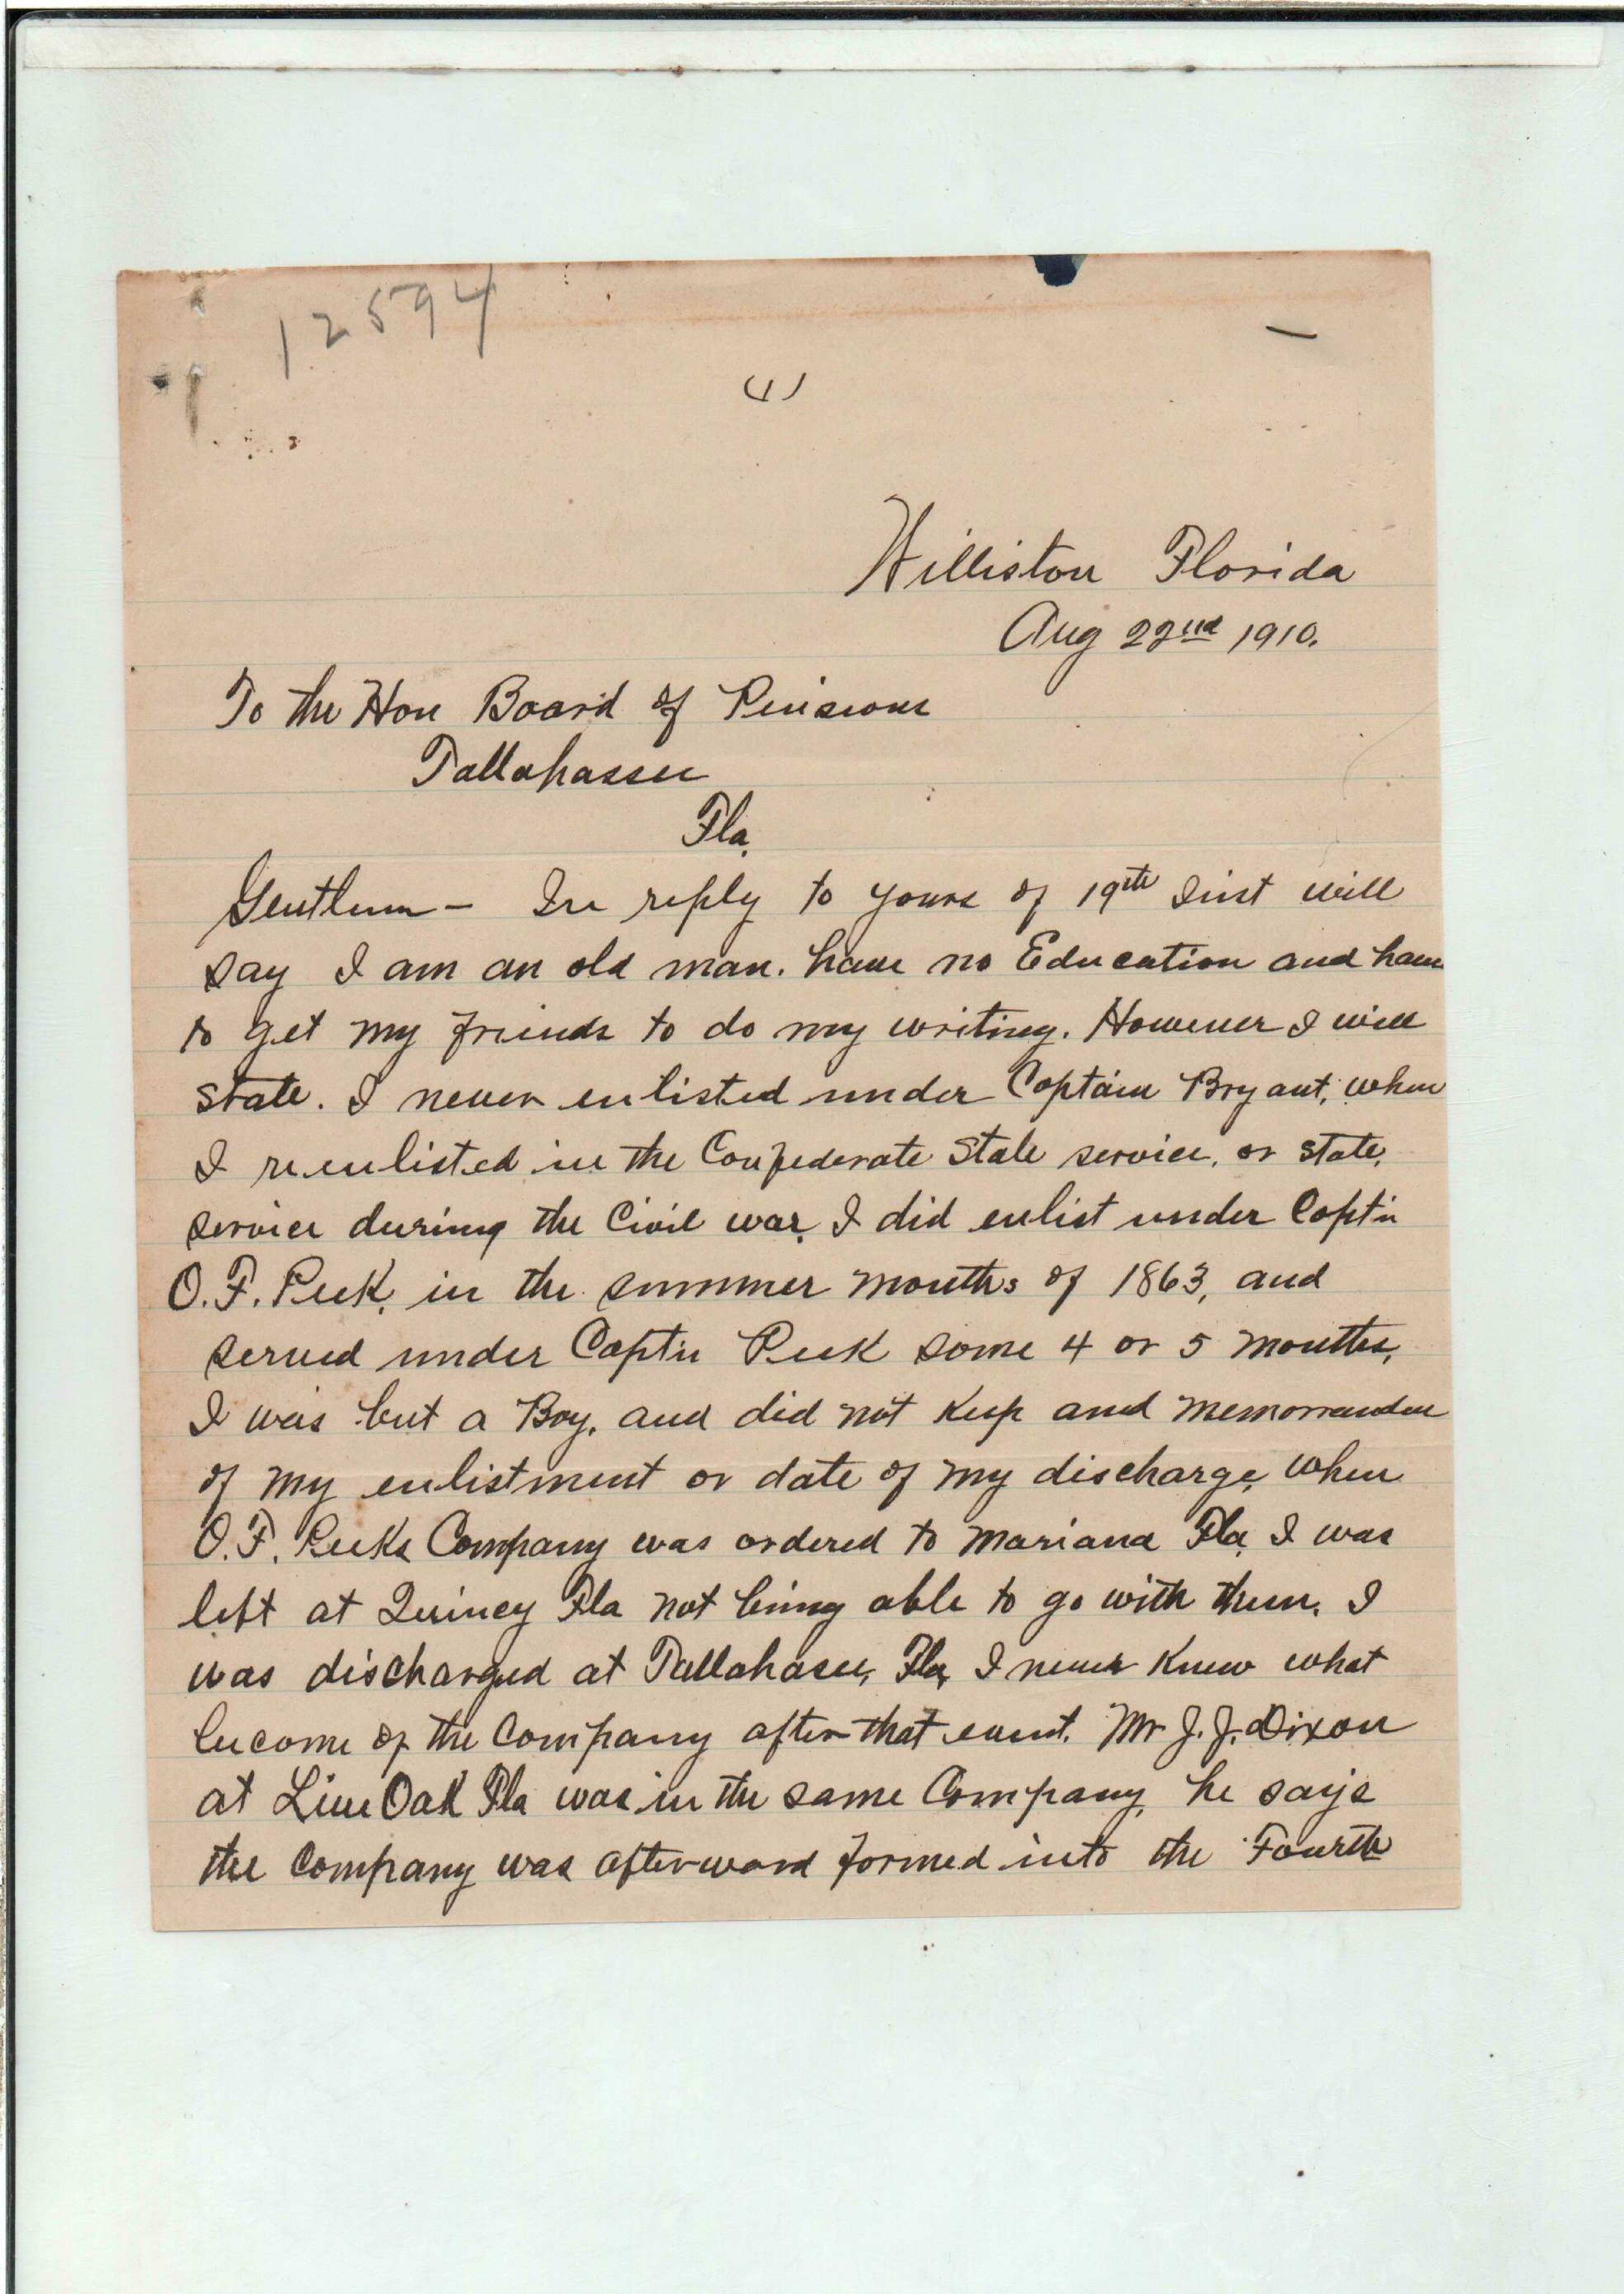 12594
(1)
Williston Florida
Aug 22nd 1910.
To the Hon Board of Pensions
Tallahassee
Fla.
Gentlemen - In reply to yours of 19th Inst will
say I am an old man. have no Education and have
to get my friends to do my writing. However I will
state. I never enlisted under Captain Bryant, when
I reenlisted in the Confederate State service, or state,
service during the Civil war, I did enlist under Capt'n
O. F. Peek, in the summer months of 1863, and
served under Capt'n Peek some 4 or 5 months,
I was but a Boy, and did not keep and memorranden
of my enlistment or date of my discharge, when
O. F. Peeks Company was ordered to Mariana Fla, I was
left at Quincy Fla not being able to go with them. I
was discharged at Tallahasee, Fla, I never knew what
become of the Company after that event. Mr J. J. Dixon
at Live Oak Fla was in the same Company, he says
the Company was afterward formed into the Fourth